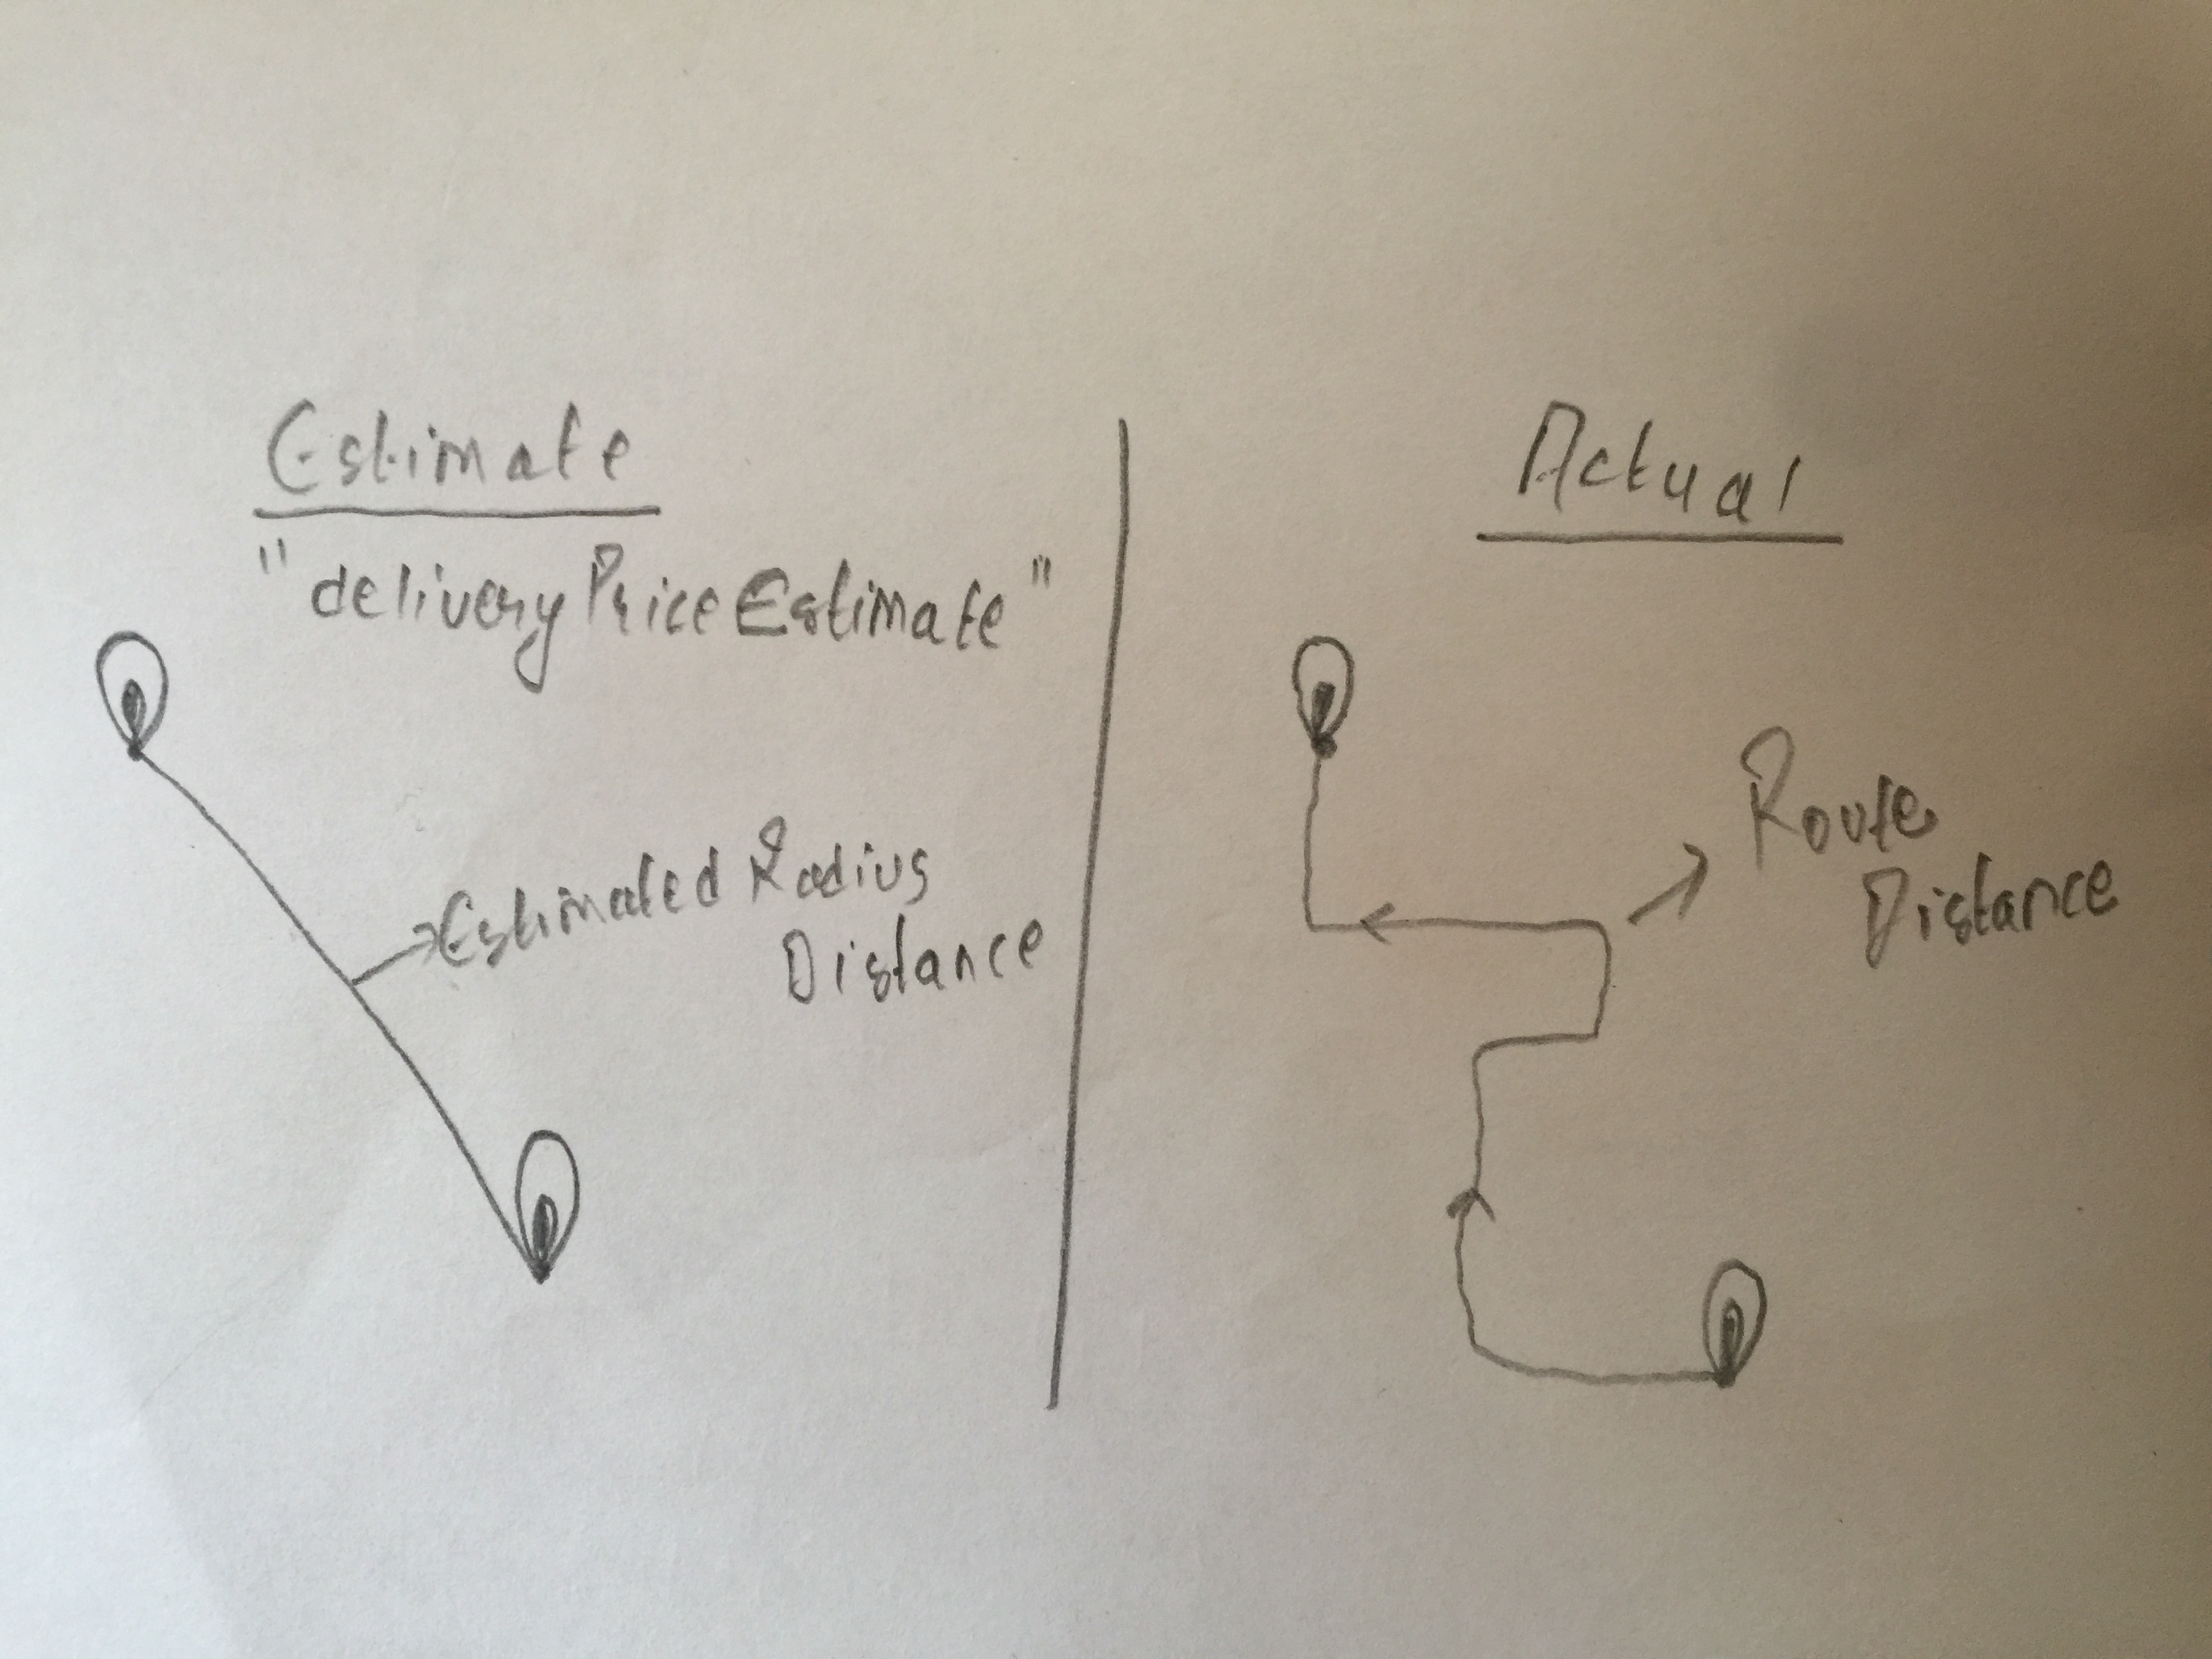 Estimate
"deliveryPriceEstimate"
Estimated Radius
Distance
Actual
Route
Distance